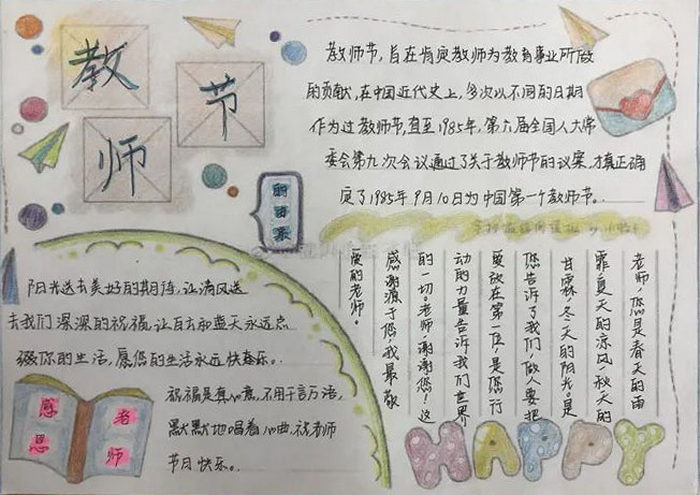 教
师
节
的由来
教师节，旨在肯定教师为教育事业所做
的贡献，在中国近代史上，多次以不同的日期
作为过教师节，直至1985年，第六届全国人大常
委会第九次会议通过了关于教师节的议案，才真正确
定了1985年9月10日为中国第一个教师节。
老师，您是春天的雨
霏，夏天的凉风，秋天的
甘霖，冬天的阳光。是
您告诉了我们，做人要把
放在第一位，是您行
动的力量告诉我们世界
的一切。老师谢谢您！这
感谢源于您，我最敬
爱的老师。
阳光送去美好的期待，让清风送
去我们深深的祝福，让白云和蓝天永远点
缀你的生活，愿您的生活永远快乐。
祝福是真心意，不用千言万语，
默默地唱着心曲，祝老师
节日快乐。
感恩
老师
HAPPY